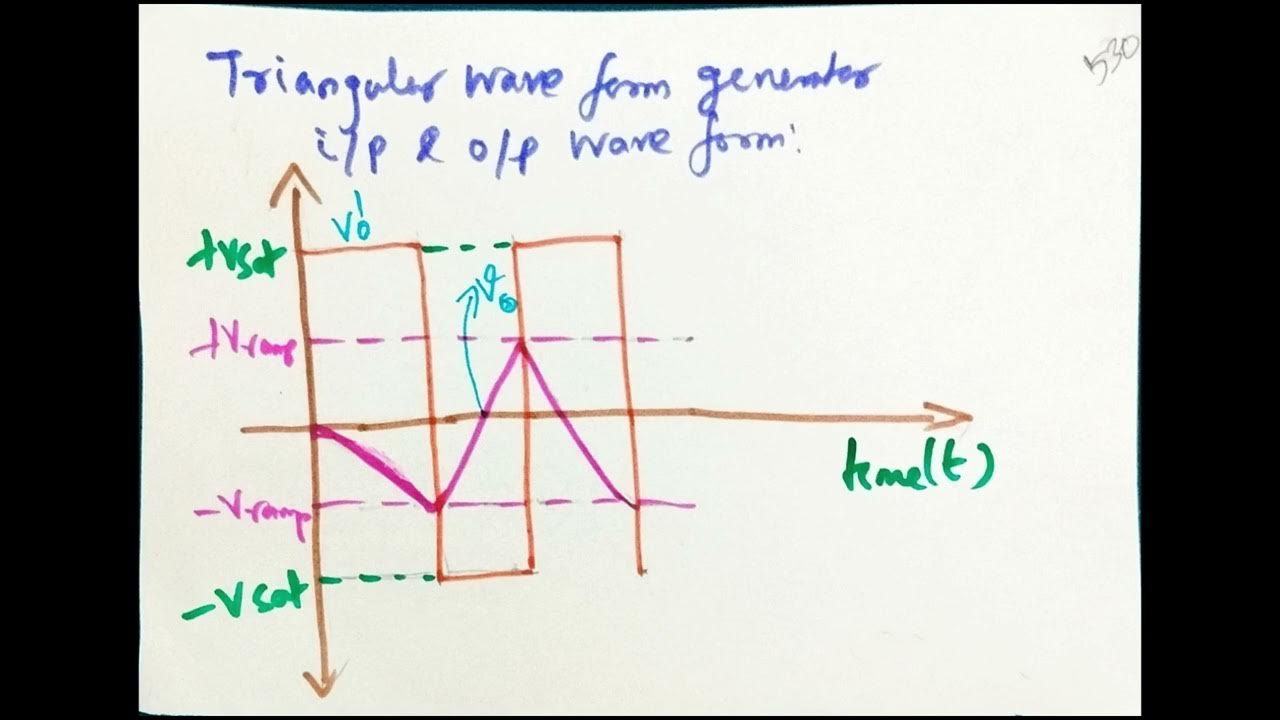 530
Triangular wave form generator
i/p & o/p wave form:
Vo'
+Vsat
Vo
+Vramp
time(t)
-Vramp
-Vsat